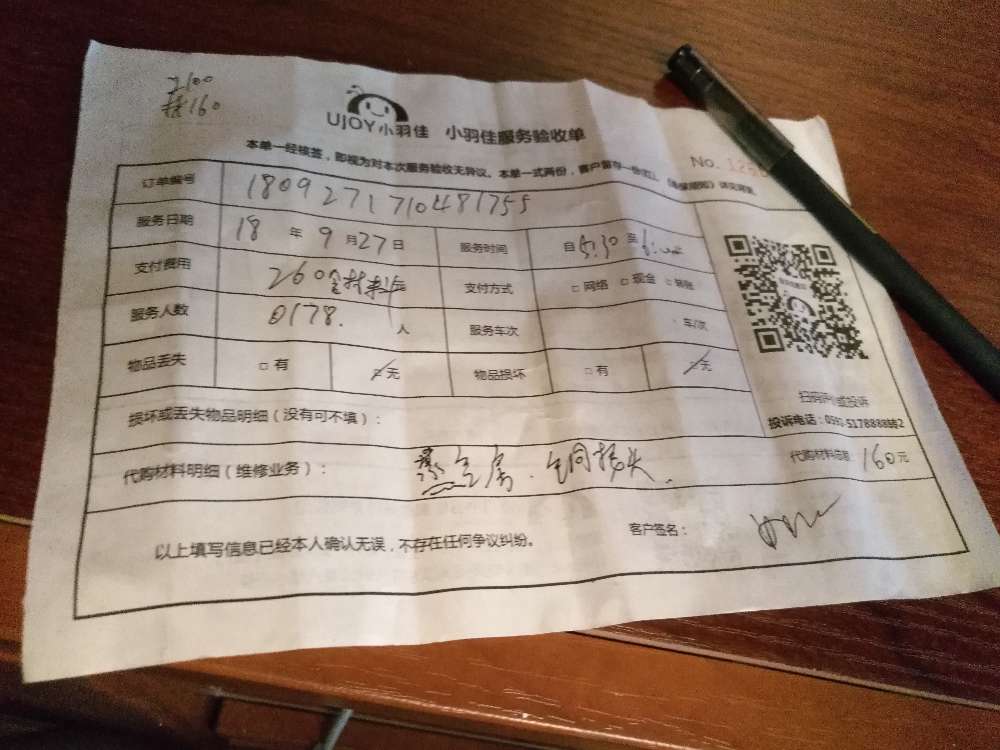 160
UJOY小羽佳 小羽佳服务验收单
本单一经核签，即视为对本次服务验收无异议。本单一式两份，客户留存一份
No. 12
订单编号 1809271710481755
服务日期 18 年 9 月 27 日 服务时间 自 5:30 至
支付费用 260含材料 元 支付方式 □ 网络 □ 现金 □ 转账
服务人数 0178. 人 服务车次 车/次
物品丢失 □ 有 □ 无 物品损坏 □ 有 □ 无
损坏或丢失物品明细（没有可不填）：
扫码评价或投诉
投诉电话：0592-5178888转2
代购材料明细（维修业务）： 金属 铜接头 代购材料信息 160元
以上填写信息已经本人确认无误，不存在任何争议纠纷。 客户签名：